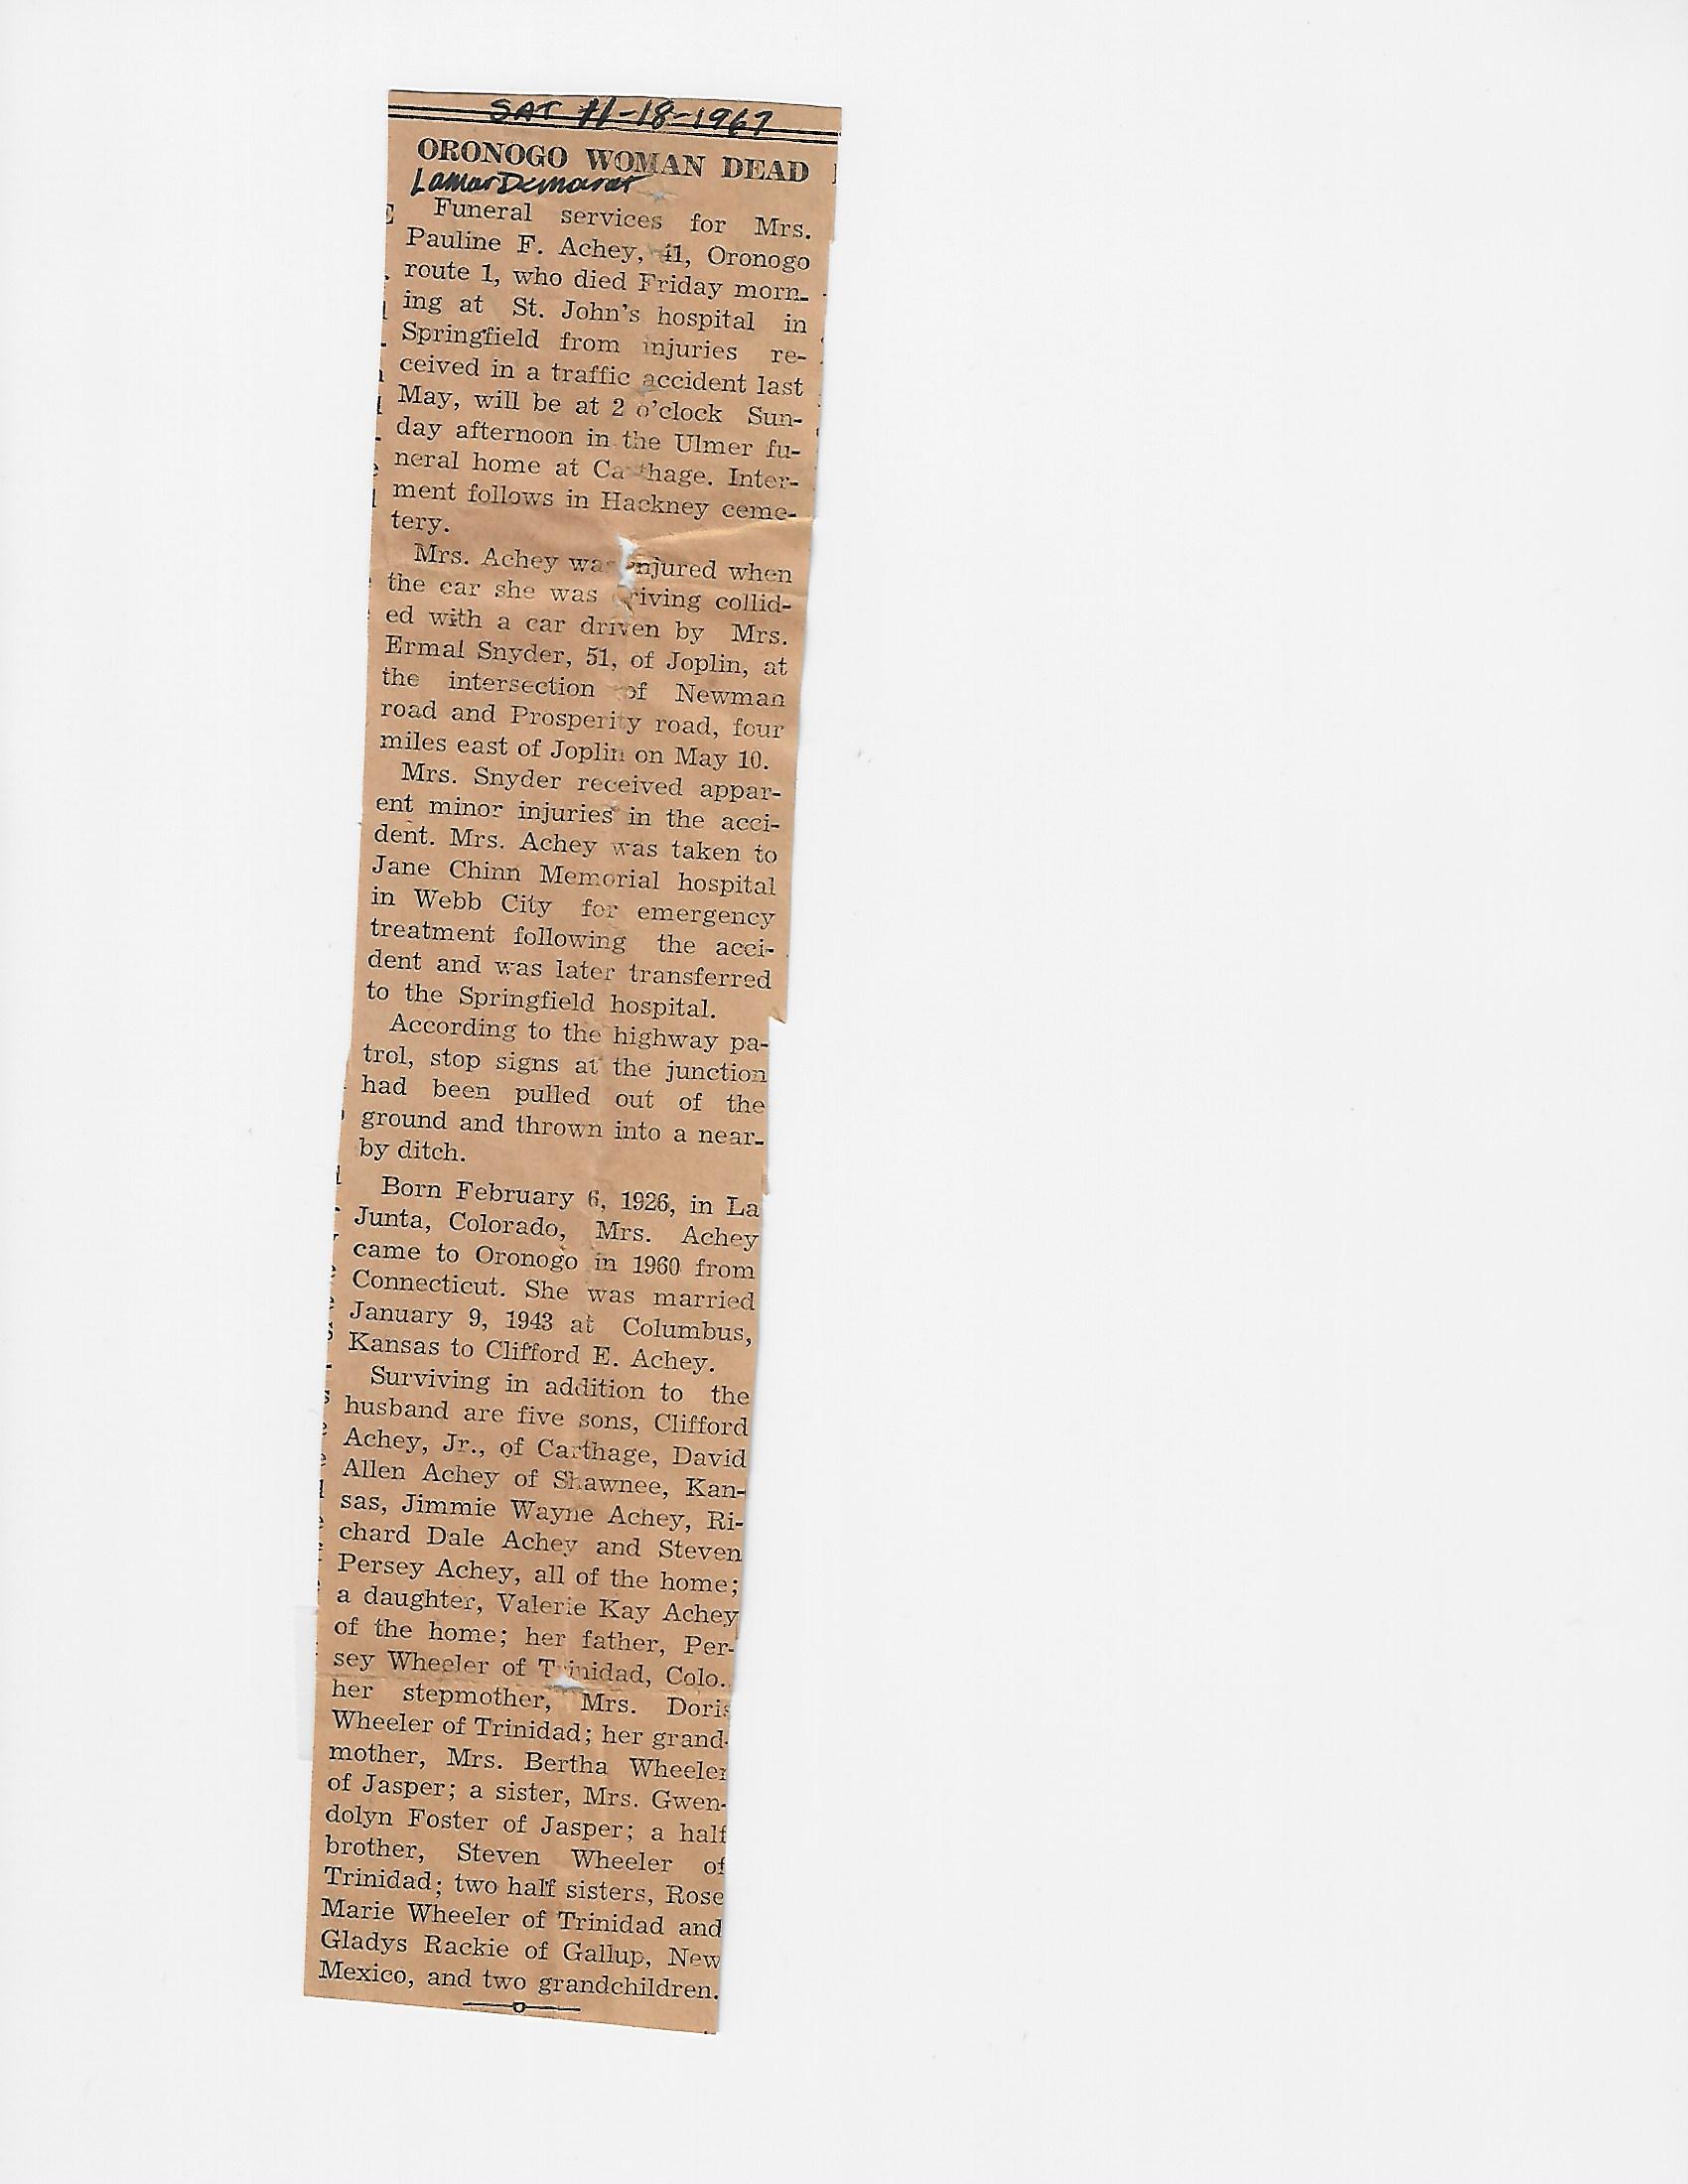 SAT 11-18-1967
ORONOGO WOMAN DEAD
Lamar Democrat
Funeral services for Mrs.
Pauline F. Achey, 41, Oronogo
route 1, who died Friday morn-
ing at St. John's hospital in
Springfield from injuries re-
ceived in a traffic accident last
May, will be at 2 o'clock Sun-
day afternoon in the Ulmer fu-
neral home at Carthage. Inter-
ment follows in Hackney ceme-
tery.
Mrs. Achey was injured when
the car she was driving collid-
ed with a car driven by Mrs.
Ermal Snyder, 51, of Joplin, at
the intersection of Newman
road and Prosperity road, four
miles east of Joplin on May 10.
Mrs. Snyder received appar-
ent minor injuries in the acci-
dent. Mrs. Achey was taken to
Jane Chinn Memorial hospital
in Webb City for emergency
treatment following the acci-
dent and was later transferred
to the Springfield hospital.
According to the highway pa-
trol, stop signs at the junction
had been pulled out of the
ground and thrown into a near-
by ditch.
Born February 6, 1926, in La
Junta, Colorado, Mrs. Achey
came to Oronogo in 1960 from
Connecticut. She was married
January 9, 1943 at Columbus,
Kansas to Clifford E. Achey.
Surviving in addition to the
husband are five sons, Clifford
Achey, Jr., of Carthage, David
Allen Achey of Shawnee, Kan-
sas, Jimmie Wayne Achey, Ri-
chard Dale Achey and Steven
Persey Achey, all of the home;
a daughter, Valerie Kay Achey
of the home; her father, Per-
sey Wheeler of Trinidad, Colo.,
her stepmother, Mrs. Doris
Wheeler of Trinidad; her grand-
mother, Mrs. Bertha Wheeler
of Jasper; a sister, Mrs. Gwen-
dolyn Foster of Jasper; a half
brother, Steven Wheeler of
Trinidad; two half sisters, Rose
Marie Wheeler of Trinidad and
Gladys Rackie of Gallup, New
Mexico, and two grandchildren.